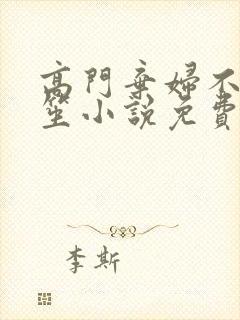 高門棄婦不
笙小說免費
李斯